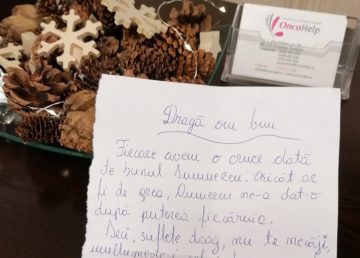 OncoHelp
Dragă om bun
Fiecare avem o cruce dată
de bunul Dumnezeu. Oricât ar
fi de grea, Dumnezeu ne-a dat-o
după puterea fiecăruia.
Deci, suflete drag, nu te necăji,